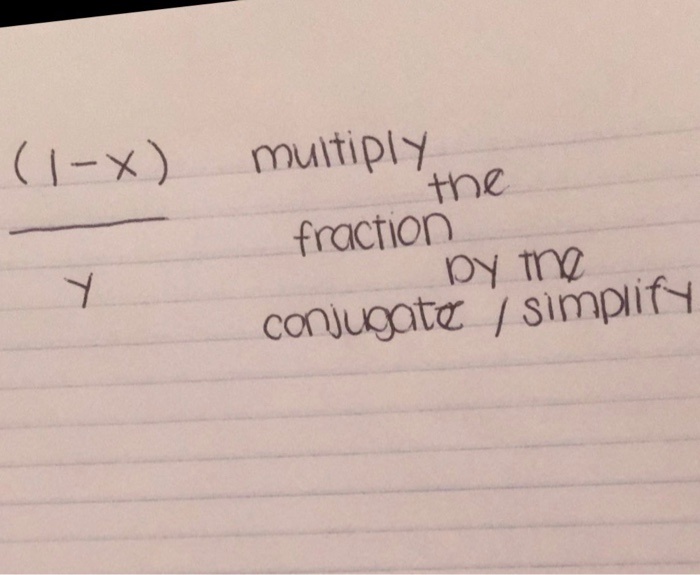 (1-x) multiply
the
fraction
y by the
conjugate / simplify